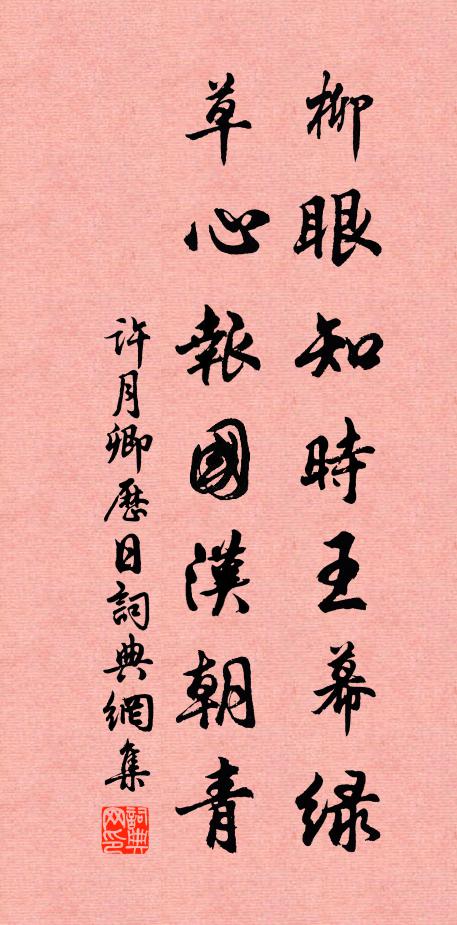 柳眼知時王幕緑
草心報國漢朝青
許月卿歷日詞典網集
詞典网印